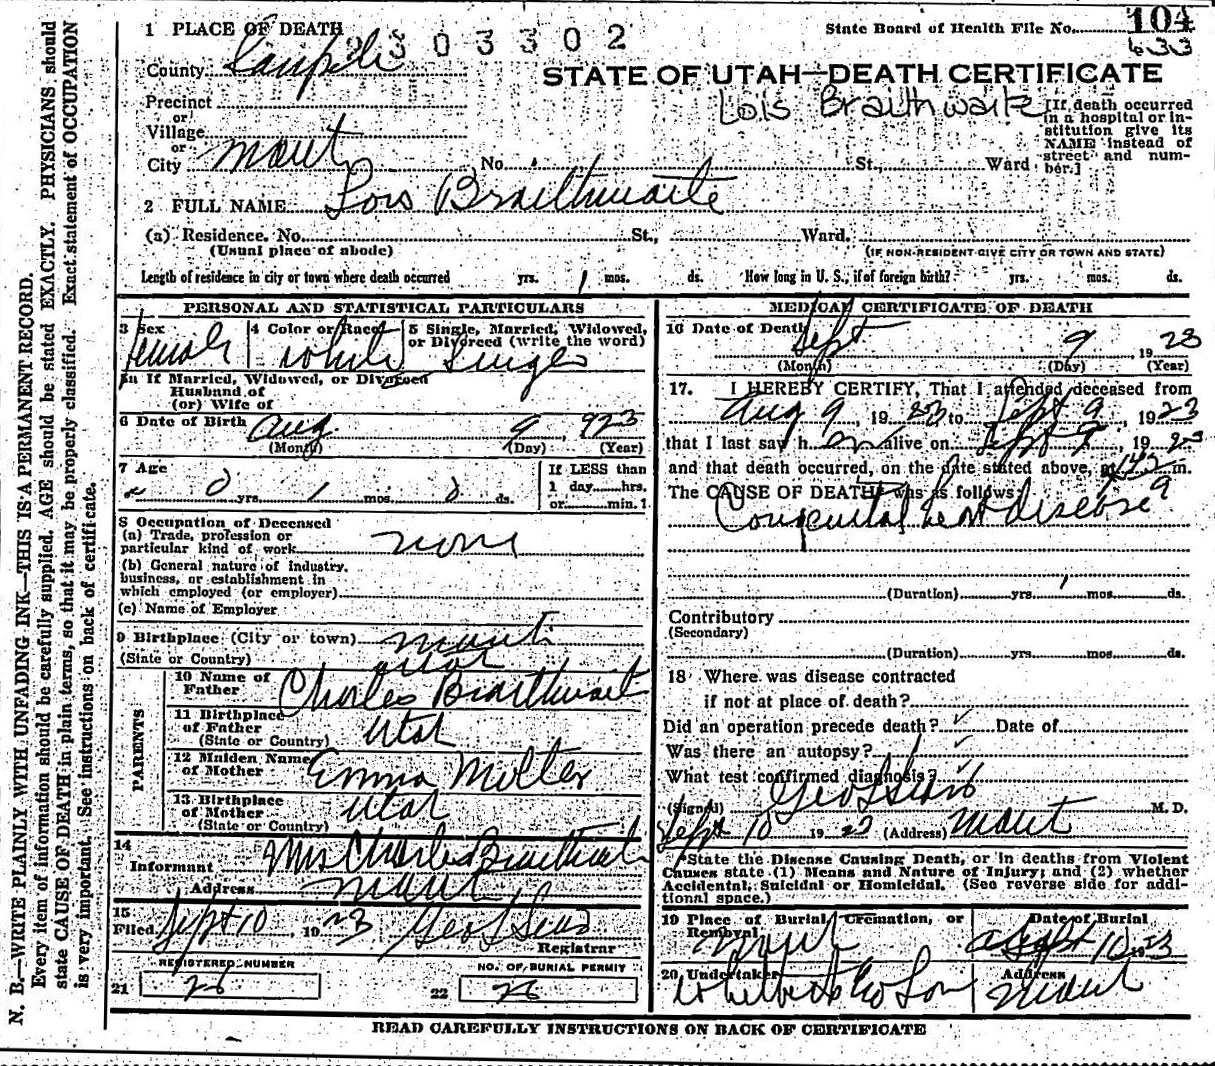 1 PLACE OF DEATH
2303302
State Board of Health File No. 104
633
County Sanpete
STATE OF UTAH—DEATH CERTIFICATE
Lois Braithwaite
Precinct
or
Village
or
City Manti No. St., Ward
[If death occurred in a hospital or institution give its NAME instead of street and number.]
2 FULL NAME Lois Braithwaite
(a) Residence. No. St., Ward.
(Usual place of abode) (IF NON-RESIDENT GIVE CITY OR TOWN AND STATE)
Length of residence in city or town where death occurred yrs. 1 mos. ds. How long in U. S., if of foreign birth? yrs. mos. ds.
PERSONAL AND STATISTICAL PARTICULARS
3 Sex Female
4 Color or Race White
5 Single, Married, Widowed, or Divorced (write the word) Single
5a If Married, Widowed, or Divorced
Husband of
(or) Wife of
6 Date of Birth Aug. 9, 923
(Month) (Day) (Year)
7 Age 0 yrs. 1 mos. 0 ds.
If LESS than
1 day hrs.
or min.
8 Occupation of Deceased
(a) Trade, profession or
particular kind of work none
(b) General nature of industry,
business, or establishment in
which employed (or employer)
(c) Name of Employer
9 Birthplace (City or town) Manti
(State or Country) Utah
PARENTS
10 Name of Father Charles Braithwait
11 Birthplace of Father
(State or Country) Utah
12 Maiden Name of Mother Emma
13 Birthplace of Mother
(State or Country) Utah
14
Informant Mrs Charles Braithwait
Address Manti
15
Filed Sept 10 1923 Geo L Sears
Registrar
REGISTERED NUMBER
21 26
NO. OF BURIAL PERMIT
22 26
MEDICAL CERTIFICATE OF DEATH
16 Date of Death Sept 9, 1923
(Month) (Day) (Year)
17. I HEREBY CERTIFY, That I attended deceased from
Aug 9, 1923 to Sept 9, 1923
that I last saw h alive on Sept 9, 1923
and that death occurred, on the date stated above, at m.
The CAUSE OF DEATH was as follows:
Congenital heart disease
(Duration) yrs. mos. ds.
Contributory
(Secondary)
(Duration) yrs. mos. ds.
18 Where was disease contracted
if not at place of death?
Did an operation precede death? ✓ Date of
Was there an autopsy? ✓
What test confirmed diagnosis? ✓
(Signed) Geo L Sears M. D.
Sept 10 1923 (Address) Manti
*State the Disease Causing Death, or in deaths from Violent
Causes state (1) Means and Nature of Injury; and (2) whether
Accidental, Suicidal or Homicidal. (See reverse side for additional space.)
19 Place of Burial, Cremation, or Removal Manti
Date of Burial Sept 10 1923
20 Undertaker
Address Manti
READ CAREFULLY INSTRUCTIONS ON BACK OF CERTIFICATE
N. B.—WRITE PLAINLY WITH UNFADING INK—THIS IS A PERMANENT RECORD.
Every item of information should be carefully supplied. AGE should be stated EXACTLY. PHYSICIANS should
state CAUSE OF DEATH in plain terms, so that it may be properly classified. Exact statement of OCCUPATION
is very important. See instructions on back of certificate.